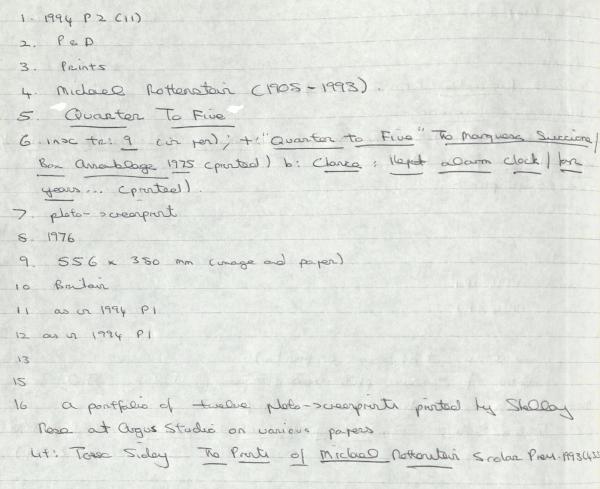 1. 1994 P2 (11)
2. P & D
3. Prints
4. Michael Rothenstein (1905-1993).
5. Quarter To Five
6. insc tr: 9 (in pen); t: "Quarter to Five" The Marquess Succiore/
Box Assemblage 1975 (printed) b: Clarice : kept alarm clock / for
years... (printed).
7. photo-screenprint
8. 1976
9. 556 x 380 mm (image and paper)
10 Britain
11 as in 1994 P1
12 as in 1994 P1
13
15
16 a portfolio of twelve photo-screenprints printed by Shelley
Rose at Argus Studio on various papers
Lit: Tessa Sidey The Prints of Michael Rothenstein Scolar Press 1993